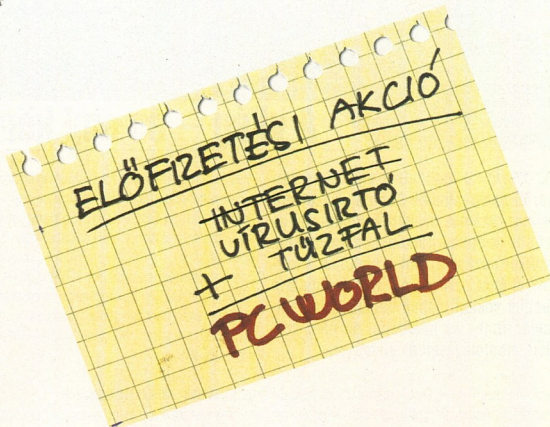 ELŐFIZETÉSI AKCIÓ
INTERNET
VÍRUSIRTÓ
+ TŰZFAL
PC WORLD